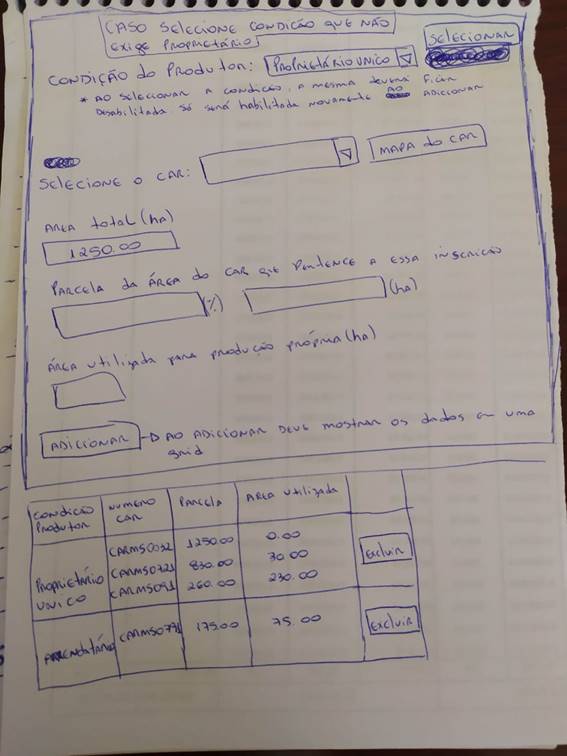 CASO SELECIONE CONDIÇÃO QUE NÃO
EXIGE PROPRIETÁRIO
SELECIONAR
CONDIÇÃO do PRODUTOR: PROPRIETÁRIO UNICO
* AO SELECIONAR A CONDICÃO, A MESMA DEVERÁ FICAR
DESABILITADA SÓ SERÁ HABILITADA NOVAMENTE AO ADICIONAR
SELECIONE O CAR:
MAPA do CAR
ÁREA total (ha)
1250.00
PARCELA da ÁREA do CAR QUE PERTENCE A ESSA INSCRIÇÃO
(%) (ha)
ÁREA utilizada para produção própria (ha)
ADICIONAR
AO ADICIONAR DEVE MOSTRAR OS dados em uma
grid
CONDICÃO PRODUTOR
NUMERO CAR
PARCELA
AREA Utilizada
PROPRIETÁRIO UNICO
CARMS0032 1250.00 0.00
CARMS0321 830.00 30.00
CARMS091 260.00 230.00
Excluir
ARRENDATÁRIO CARMS0791 175.00 75.00
Excluir